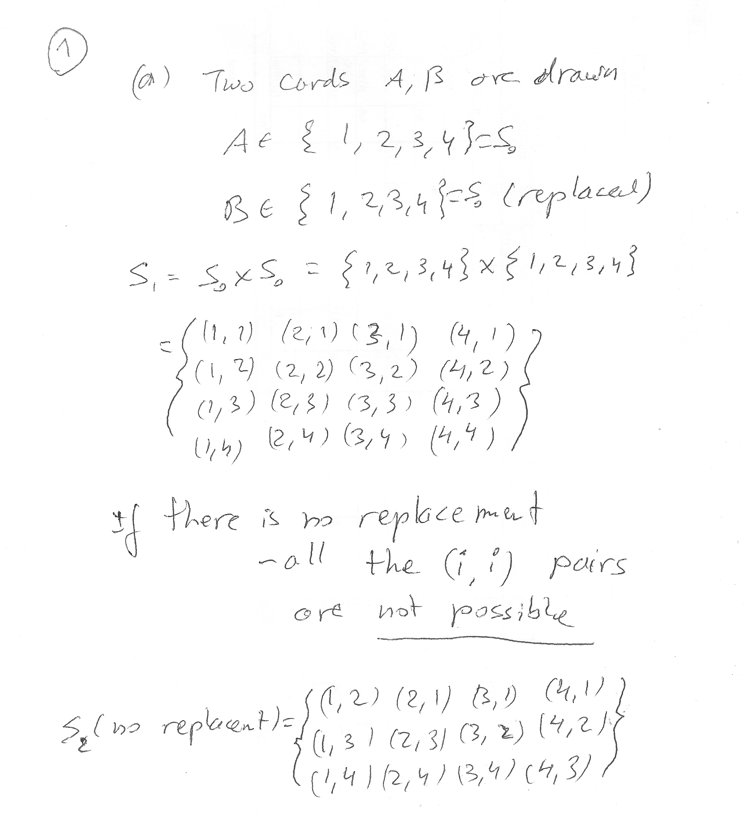 1
(a) Two cards A, B are drawn
A ∈ { 1, 2, 3, 4 } = S₀
B ∈ { 1, 2, 3, 4 } = S₀ (replaced)
S₁ = S₀ × S₀ = {1, 2, 3, 4} × {1, 2, 3, 4}
= { (1, 1) (2, 1) (3, 1) (4, 1)
(1, 2) (2, 2) (3, 2) (4, 2)
(1, 3) (2, 3) (3, 3) (4, 3)
(1, 4) (2, 4) (3, 4) (4, 4) }
If there is no replacement
- all the (i, i) pairs
are not possible
S₂ (no replacent) = { (1, 2) (2, 1) (3, 1) (4, 1)
(1, 3) (2, 3) (3, 2) (4, 2)
(1, 4) (2, 4) (3, 4) (4, 3) }